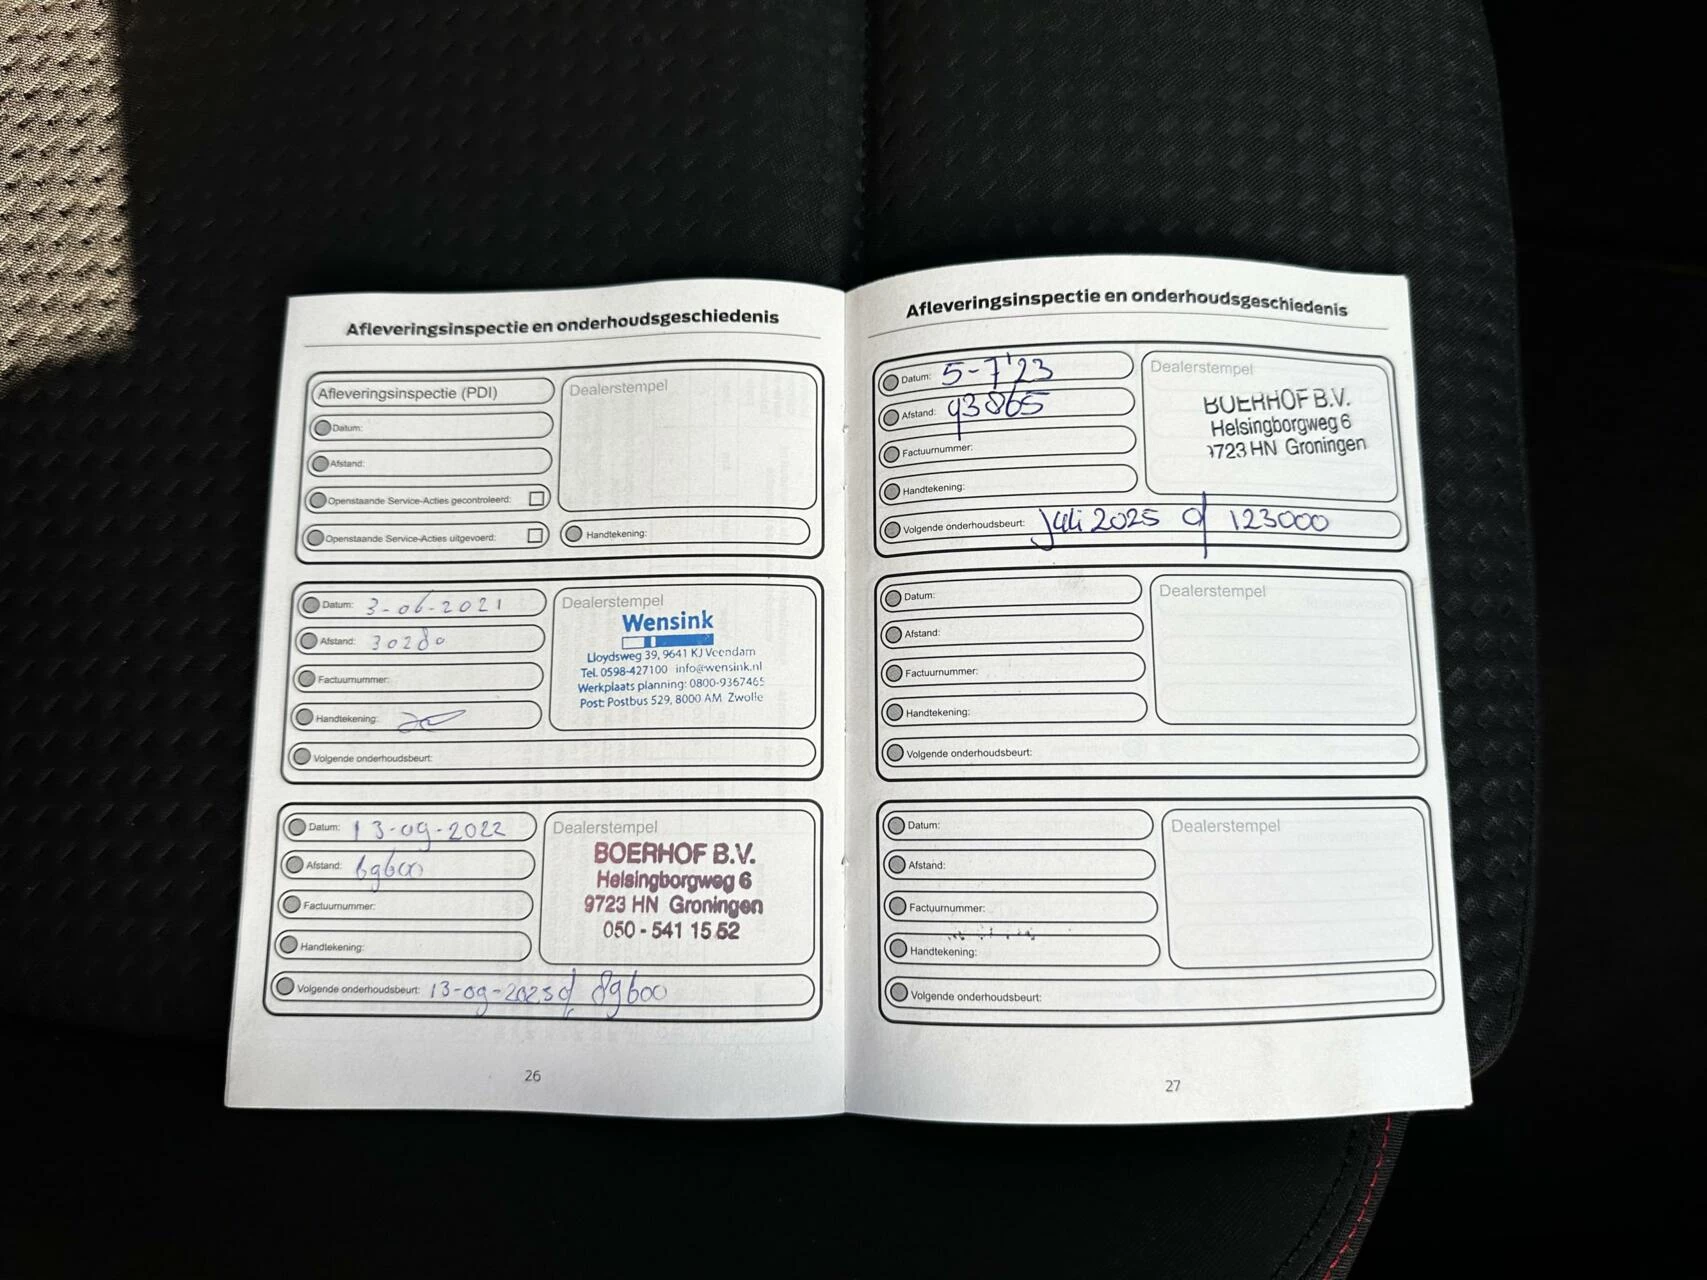 Afleveringsinspectie en onderhoudsgeschiedenis
Afleveringsinspectie (PDI)
Datum:
Afstand:
Openstaande Service-Acties gecontroleerd:
Openstaande Service-Acties uitgevoerd:
Dealerstempel
Handtekening:
Datum: 3-06-2021
Afstand: 30280
Factuurnummer:
Handtekening:
Volgende onderhoudsbeurt:
Dealerstempel
Wensink
Lloydsweg 39, 9641 KJ Veendam
Tel. 0598-427100 info@wensink.nl
Werkplaats planning: 0800-9367465
Post: Postbus 529, 8000 AM Zwolle
Datum: 13-09-2022
Afstand: 69600
Factuurnummer:
Handtekening:
Volgende onderhoudsbeurt: 13-09-2023 of 89600
Dealerstempel
BOERHOF B.V.
Helsingborgweg 6
9723 HN Groningen
050 - 541 15 52
26
Afleveringsinspectie en onderhoudsgeschiedenis
Datum: 5-7'23
Afstand: 93865
Factuurnummer:
Handtekening:
Volgende onderhoudsbeurt: juli 2025 of 123000
Dealerstempel
BOERHOF B.V.
Helsingborgweg 6
9723 HN Groningen
Datum:
Afstand:
Factuurnummer:
Handtekening:
Volgende onderhoudsbeurt:
Dealerstempel
Datum:
Afstand:
Factuurnummer:
Handtekening:
Volgende onderhoudsbeurt:
Dealerstempel
27